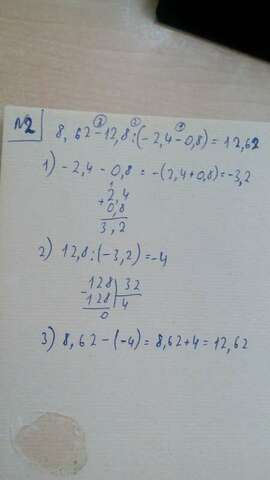 №2
③ ② ①
8,62-12,8:(-2,4-0,8)=12,62
1) -2,4-0,8 = -(2,4+0,8)=-3,2
1
+2,4
0,8
3,2
2) 12,8:(-3,2)=-4
-128 | 32
128 | 4
0
3) 8,62-(-4)=8,62+4=12,62